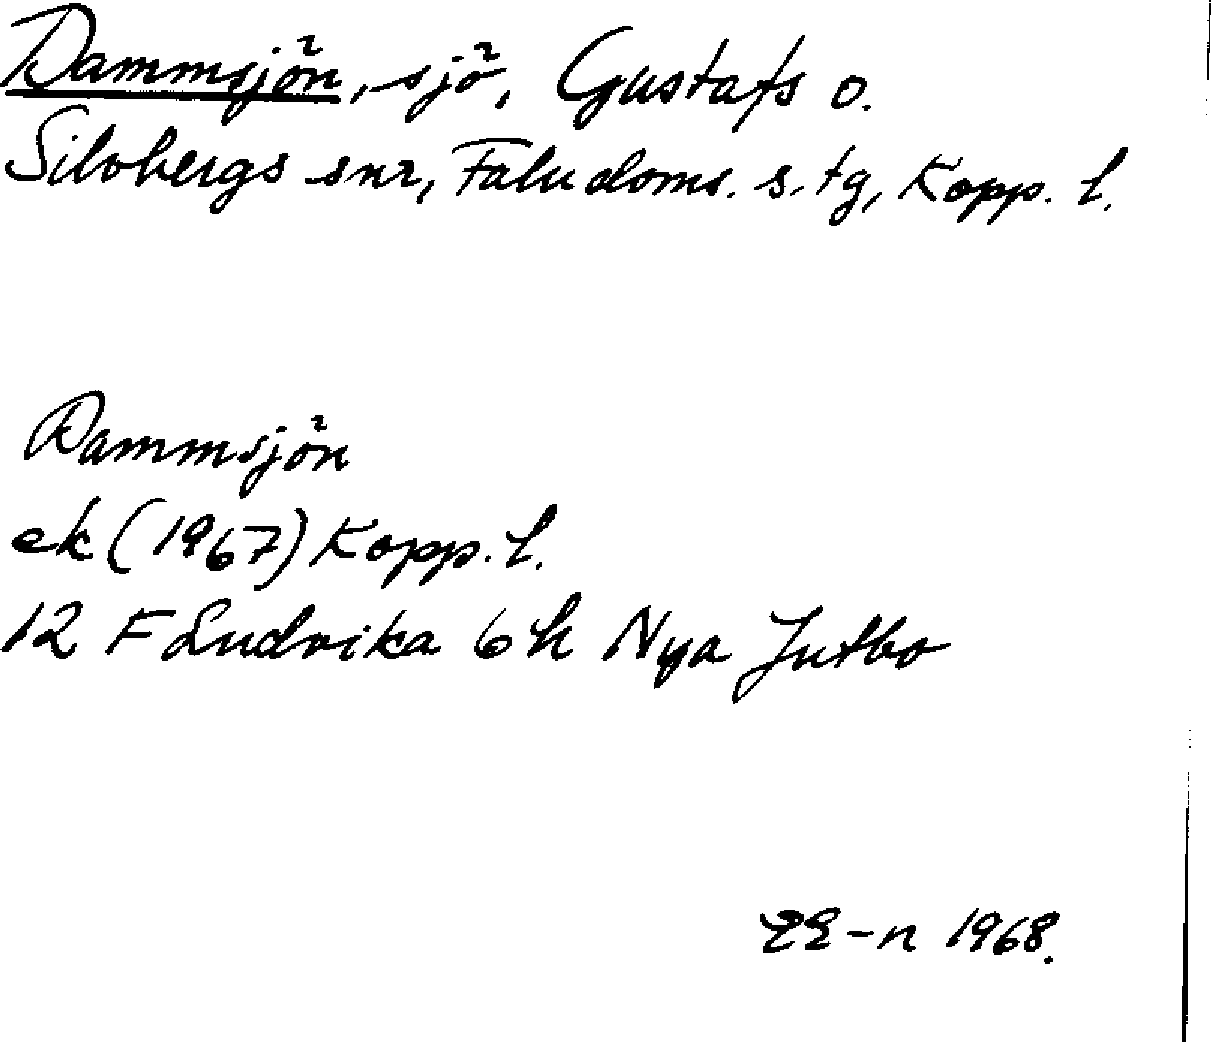 Dammsjön, sjö, Gustafs o.
Silvbergs snr, Falu doms. s. tg, Kopp. l.
Dammsjön
ek (1967) Kopp. l.
12 F Ludvika 6 h Nya Jutbo
1968.